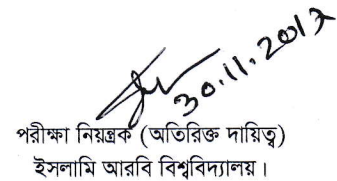 30.11.2017
পরীক্ষা নিয়ন্ত্রক (অতিরিক্ত দায়িত্ব)
ইসলামি আরবি বিশ্ববিদ্যালয়।